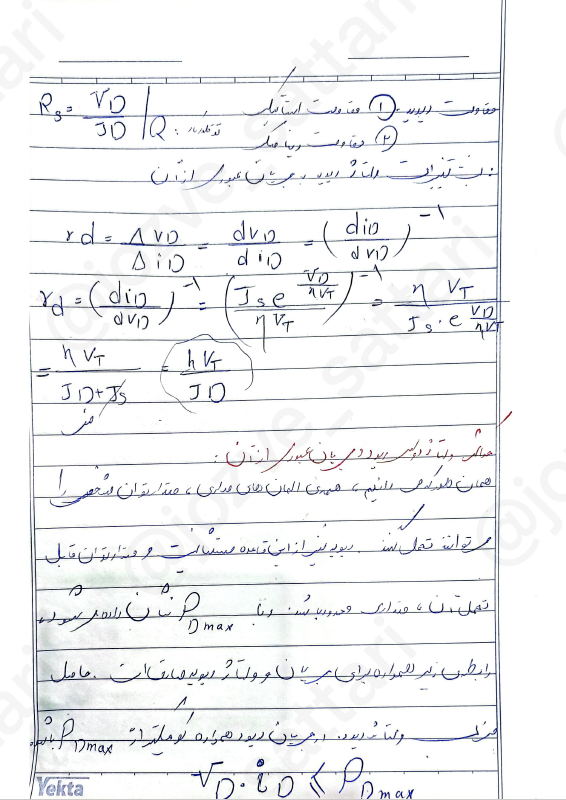 مقاومت دیود: ① مقاومت استاتیکی نقطه کار: R_s = V_D / I_D |Q
② مقاومت دینامیکی
: نسبت تغییرات ولتاژ دیود به جریان عبوری از آن
rd = ΔV_D / Δi_D = dv_D / di_D = (di_D / dv_D)^-1
r_d = (di_D / dv_D)^-1 = (I_s e^(V_D / ηV_T) / ηV_T)^-1 = η V_T / I_s . e^(V_D / ηV_T)
= η V_T / I_D + I_s = η V_T / I_D
حداکثر ولتاژ دو سر دیود و جریان عبوری از آن :
همان طور که می دانیم ، همه ی المان های مداری ، مقدار توان مشخصی را
می توانند تحمل کنند . دیود نیز از این قاعده مستثنا نیست و مقدار توان قابل
تحمل آن ، مقداری محدود می باشد . و با P_Dmax نشان داده می شود .
رابطه ی زیر همواره برای جریان و ولتاژ دیود صادق است . حاصل
ضرب ولتاژ دیود در جریان دیود همواره کوچکتر از P_Dmax باشد
V_D . i_D ⩽ P_Dmax
Yekta
@jozve_sattari